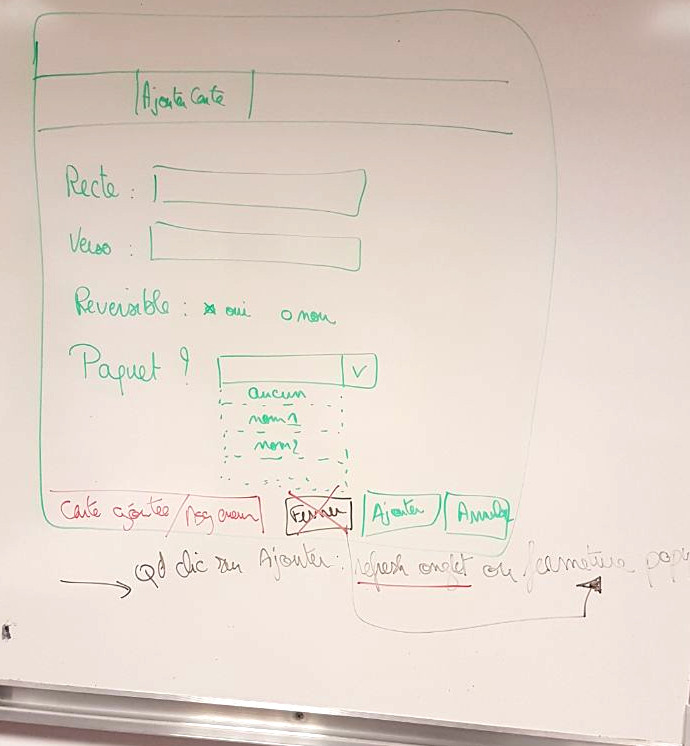 Ajouter Carte
Recto :
Verso :
Reversible : oui non
Paquet ? V
aucun
nom1
nom2
Carte ajoutée / Msg erreur Fermer Ajouter Annuler
Qd clic sur Ajouter : refresh onglet ou fermeture